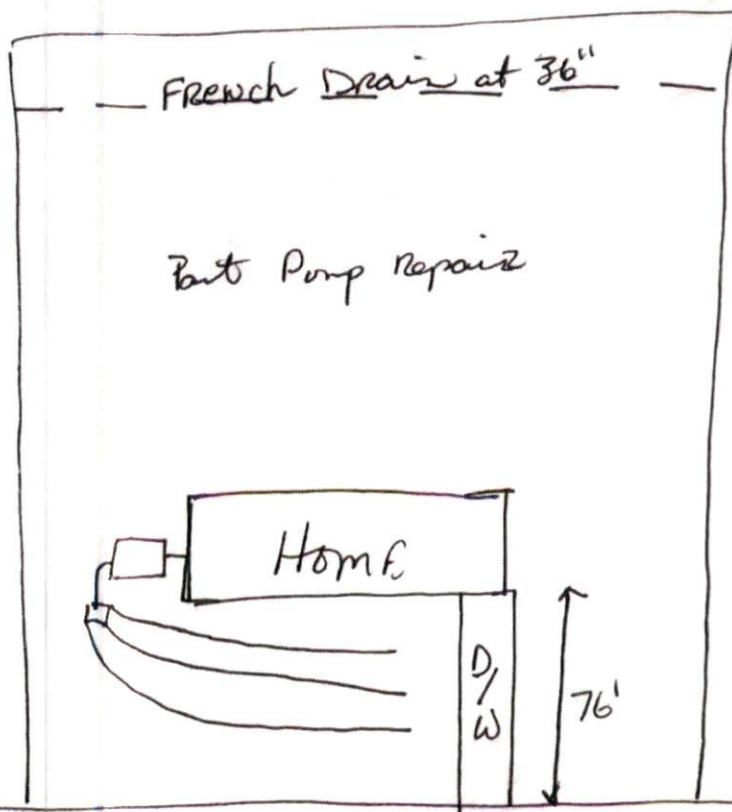 French Drain at 36"
Pump Repair
Home
D/W
76'